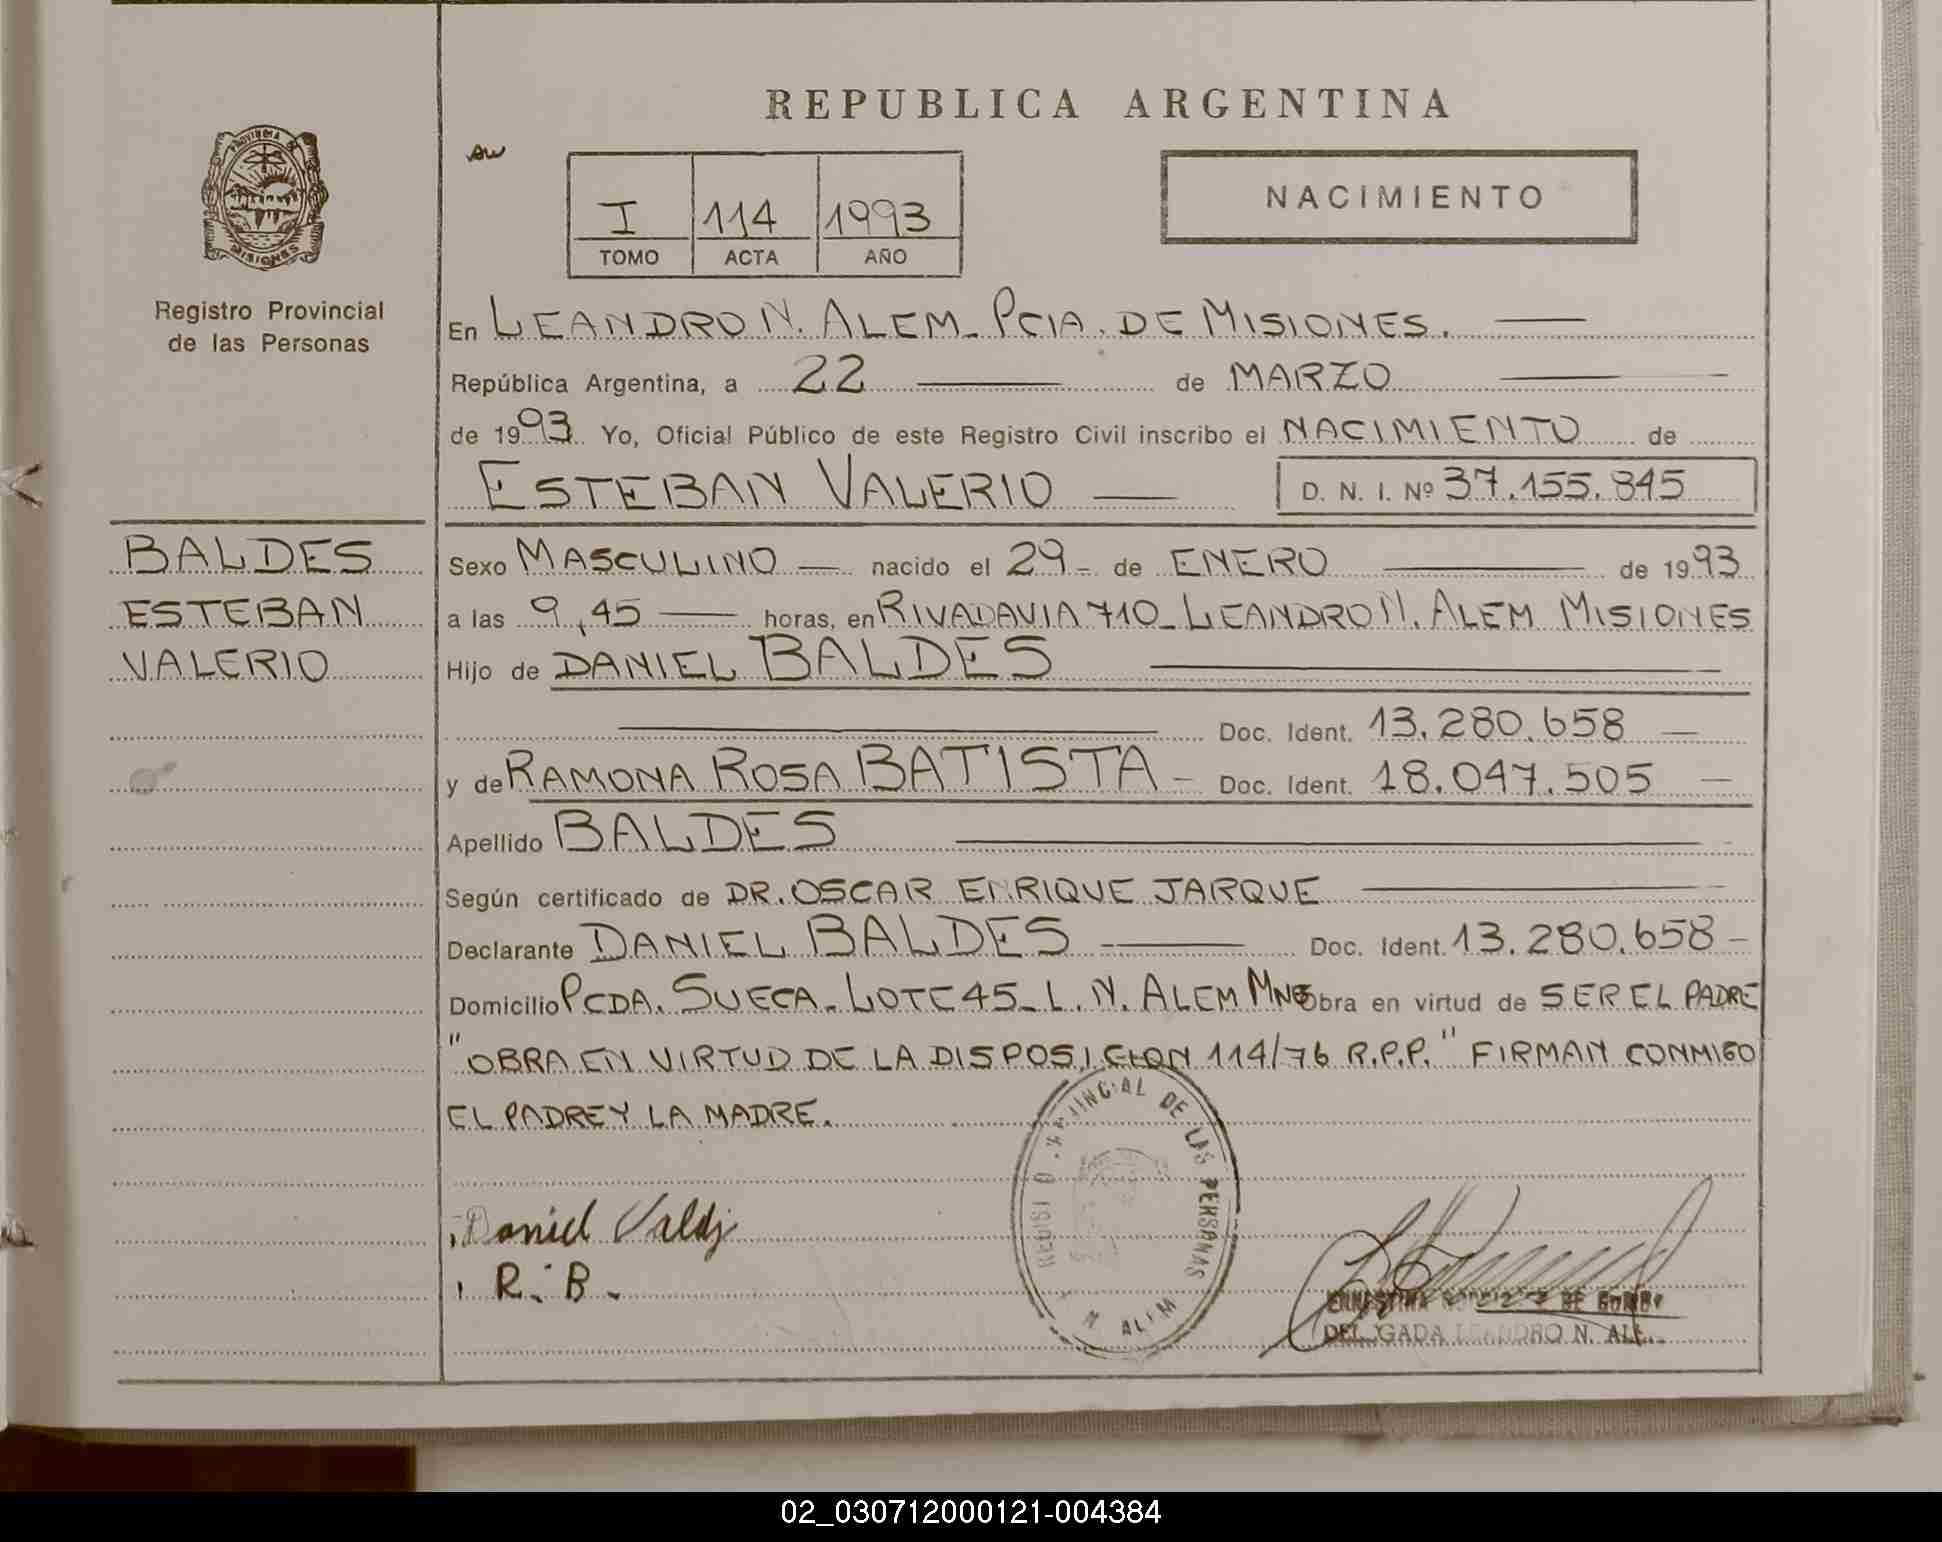 REPUBLICA ARGENTINA
PROVINCIA DE
MISIONES
Registro Provincial
de las Personas
I 114 1993
TOMO ACTA AÑO
NACIMIENTO
En LEANDRO N. ALEM - PCIA. DE MISIONES.
República Argentina, a 22 de MARZO
de 1993. Yo, Oficial Público de este Registro Civil inscribo el NACIMIENTO de
ESTEBAN VALERIO D. N. I. Nº 37.155.845
BALDES
ESTEBAN
VALERIO
Sexo MASCULINO nacido el 29 - de ENERO de 1993
a las 9,45 horas, en RIVADAVIA 710 - LEANDRO N. ALEM MISIONES
Hijo de DANIEL BALDES
Doc. Ident. 13.280.658
y de RAMONA ROSA BATISTA - Doc. Ident. 18.047.505
Apellido BALDES
Según certificado de DR. OSCAR ENRIQUE JARQUE
Declarante DANIEL BALDES Doc. Ident. 13.280.658 -
Domicilio PCDA. SUECA - LOTE 45 - L. N. ALEM MNES Obra en virtud de SER EL PADRE
"OBRA EN VIRTUD DE LA DISPOSICION 114/76 R.P.P." FIRMAN CONMIGO
EL PADRE Y LA MADRE.
DE LAS PERSONAS
N ALEM
Daniel Valdj
R. B.
ERNESTINA DE
DELEGADA LEANDRO N. ALEM
02_030712000121-004384